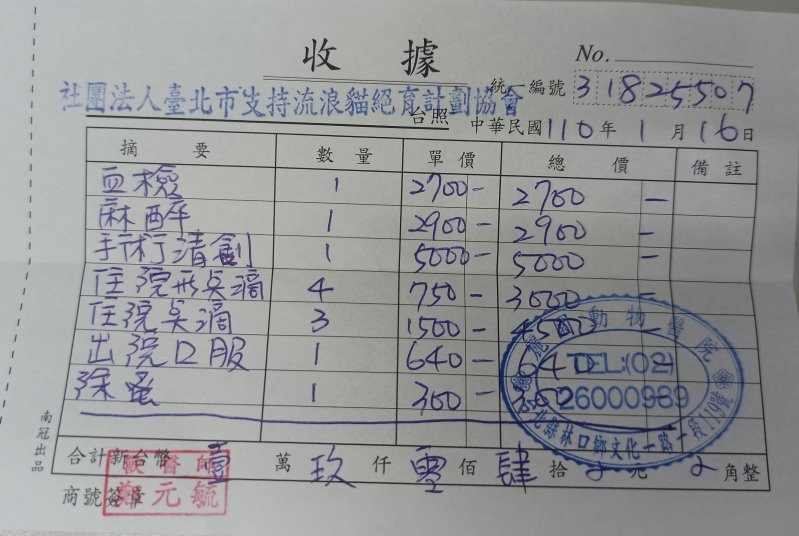 收據
No.
社團法人臺北市支持流浪貓絕育計劃協會
台照
統一編號 31825507
中華民國110年1月16日
摘要 數量 單價 總價 備註
血檢 1 2700- 2700 -
麻醉 1 2900- 2900 -
手術清創 1 5000- 5000 -
住院 點滴 4 750- 3000 -
住院點滴 3 1500- 4500 -
出院口服 1 640- 640
除蚤 1 300- 300
動物醫院
TEL:(02)
26000989
台北縣林口鄉文化一路一段119號
合計新台幣 壹萬玖仟零佰肆拾 元 角整
商號簽章
醫師
元毓
南冠出品